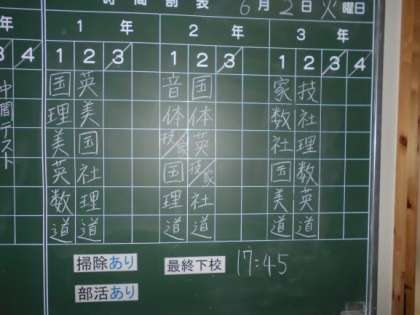 時間割表 6月2日火曜日
1年 2年 3年
3 4 1 2 3 1 2 3 1 2 3 4
国 英 音 国 家 技
理 美 体 体 数 社
美 国 技/家 英 社 理
英 社 国 技/家 国 数
数 理 理 社 美 英
道 道 道 道 道 道
中間テスト
掃除あり 最終下校 17:45
部活あり